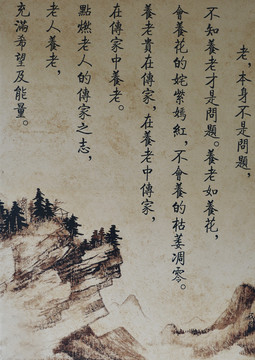 老，本身不是問題，
不知養老才是問題。養老如養花，
會養花的姹紫嫣紅，不會養的枯萎凋零。
養老貴在傳家，在養老中傳家，
在傳家中養老。
點燃老人的傳家之志，
老人養老，
充滿希望及能量。